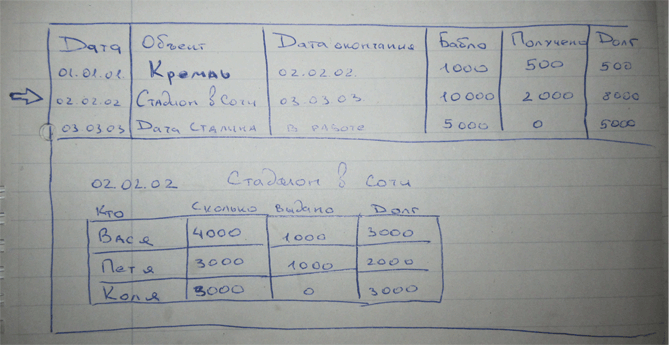 Дата Объект Дата окончания Бабло Получено Долг
01.01.01. Кремль 02.02.02. 1000 500 500
02.02.02 Стадион в Сочи 03.03.03. 10000 2000 8000
03.03.03 Дата Сталика в работе 5000 0 5000
02.02.02 Стадион в Сочи
Кто Сколько выдано Долг
Вася 4000 1000 3000
Петя 3000 1000 2000
Коля 3000 0 3000